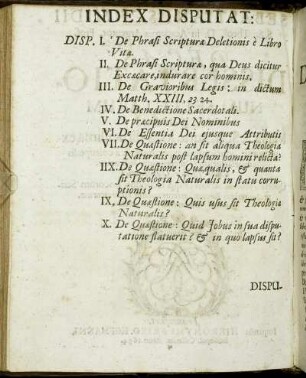 INDEX DISPUTAT:
DISP. I. De Phrasi Scripturæ Deletionis è Libro
Vitæ.
II. De Phrasi Scripturæ, qua Deus dicitur
Excæcare, indurare cor hominis.
III. De Gravioribus Legis: in dictum
Matth. XXIII. 23 24.
IV. De Benedictione Sacerdotali.
V. De præcipuis Dei Nominibus
VI. De Essentia Dei ejusque Attributis
VII. De Quæstione: an sit aliqua Theologia
Naturalis post lapsum homini relicta?
IIX. De Quæstione: Quæ, qualis, & quanta
sit Theologia Naturalis in statu corru-
ptionis?
IX. De Quæstione: Quis usus sit Theologiæ
Naturalis?
X. De Quæstione: Quid Jobus in sua dispu-
tatione statuerit? & in quo lapsus sit?
DISPU-